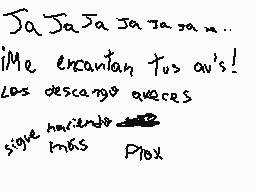 Ja Ja Ja Ja Ja Ja Ja..
¡Me encantan tus av's!
Los descargo aveces
sigue haciendo
más Plox